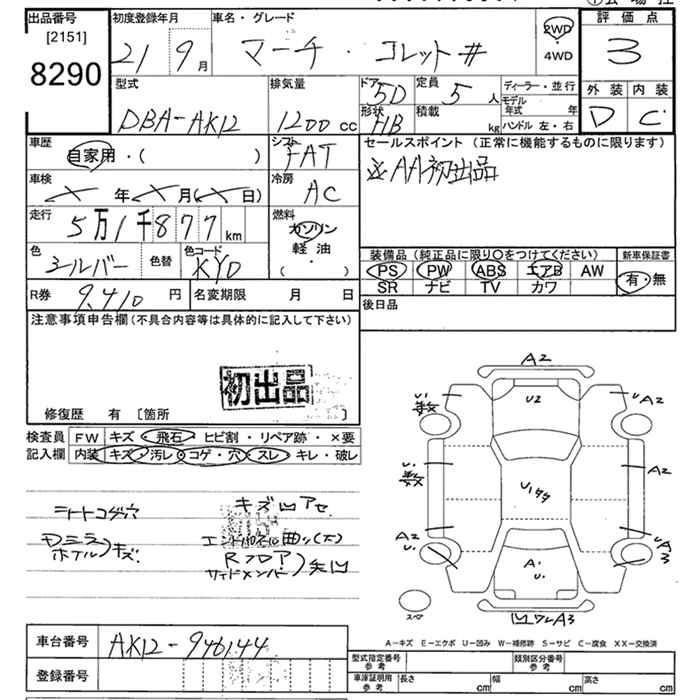 出品番号 初度登録年月 車名・グレード 評価点
[2151] 8290
21 9月 マーチ・コレット# 2WD・4WD 3
型式 排気量 ドア 5D 定員 5人 ディーラー・並行 外装 内装
DBA-AK12 1200cc 形状 HB 積載 kg モデル年式 年 ハンドル 左・右 D C
車歴 自家用・( ) シフト FAT セールスポイント (正常に機能するものに限ります)
車検 年 月( 日) 冷房 AC ※AA初出品
走行 5万1千877km 燃料 ガソリン・軽油・( )
色 シルバー 色替 色コード KY0 装備品(純正品に限り○をつけてください) 新車保証書
PS PW ABS エアB AW 有・無
SR ナビ TV カワ
R券 9,410円 名変期限 月 日 後日品
注意事項申告欄(不具合内容等は具体的に記入して下さい)
初出品
修復歴 有 [箇所 ]
検査員記入欄 FW キズ・飛石・ヒビ割・リペア跡・×要
内装 キズ・汚レ・コゲ・穴・スレ・キレ・破レ
シートコゲ穴 キズ凹アセ
ダミラ ホイル)キズ エンドパネル曲り(大)
Rフロア サイドメンバー)矢凹
A2
U1 数 U2 UA2
U1 数 U1タタ A2
A2 U1 A1 U1 UA3
スペア 凹ワレA3
A-キズ E-エクボ U-凹み W-補修跡 S-サビ C-腐食 XX-交換済
車台番号 AK12-946144 型式指定番号 参考 類別区分番号 参考
登録番号 車庫証明用 参考 長さ cm 幅 cm 高さ cm